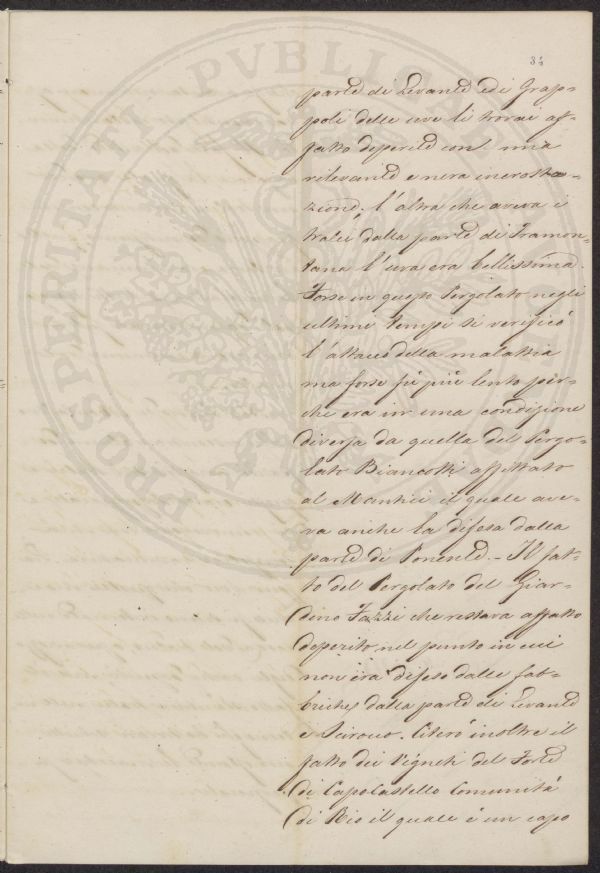 34
parte di Levante ed i Grap-
poli delle uve li trovai af-
fatto deperite con una
rilevante e nera incrosta-
zione. l'altra che aveva i
tralci dalla parte di Tramon-
tana l'uva era bellissima.
Forse in questo Pergolato negli
ultimi tempi si verificò
l'attacco della malattia
ma forse fù più lento per-
che era in una condizione
diversa da quella del Pergo-
lato Biancotti affittato
al Mantici il quale ave-
va anche la difesa dalla
parte di Ponente. - Il fat-
to del Pergolato del Giar-
dino Fazzi che restava affatto
deperito, nel punto in cui
non era difeso dalle fab-
briche, dalla parte di Levante
e Scirocco. Citerò inoltre il
fatto dei Vigneti del Forte
di Capocastello Comunità
di Rio il quale è un capo
PROSPERITATI PVBLICAE